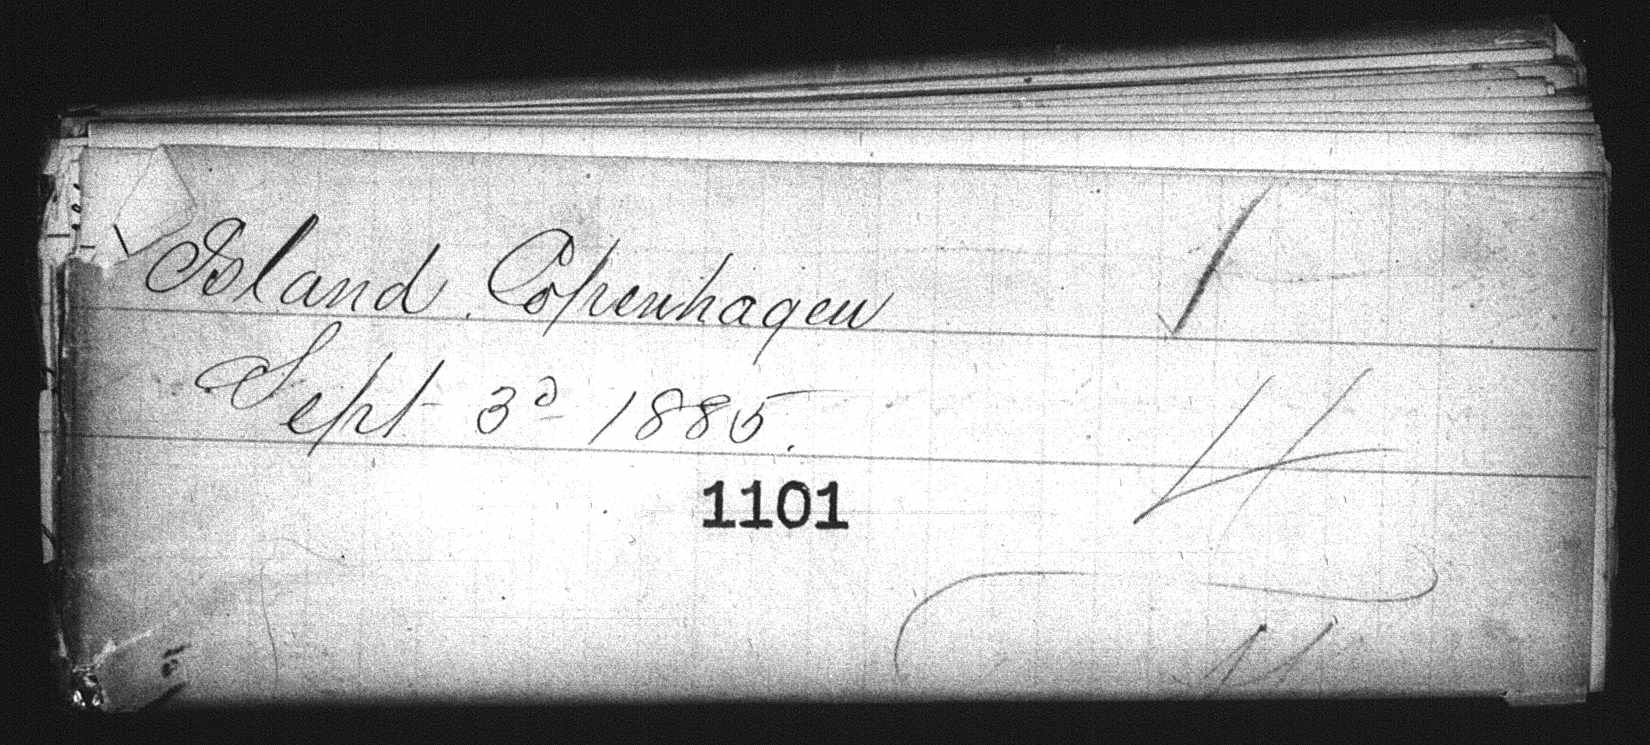 Island. Copenhagen
Sept 3d 1885.
1101
4